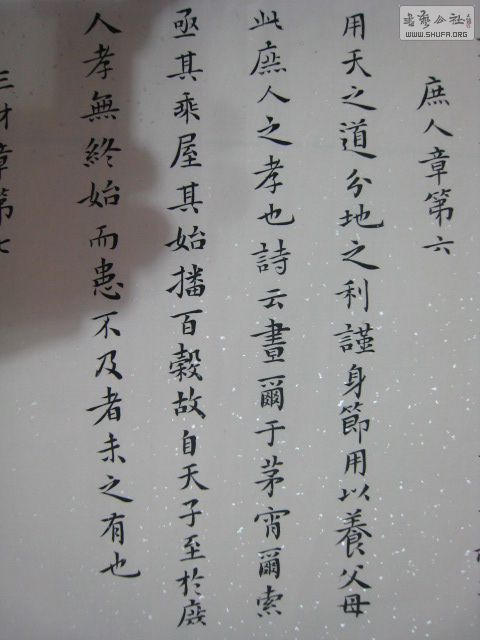 庶人章第六
用天之道分地之利謹身節用以養父母
此庶人之孝也詩云晝爾于茅宵爾索
亟其乘屋其始播百穀故自天子至於庶
人孝無終始而患不及者未之有也
三才章第七
書藝公社
WWW.SHUFA.ORG